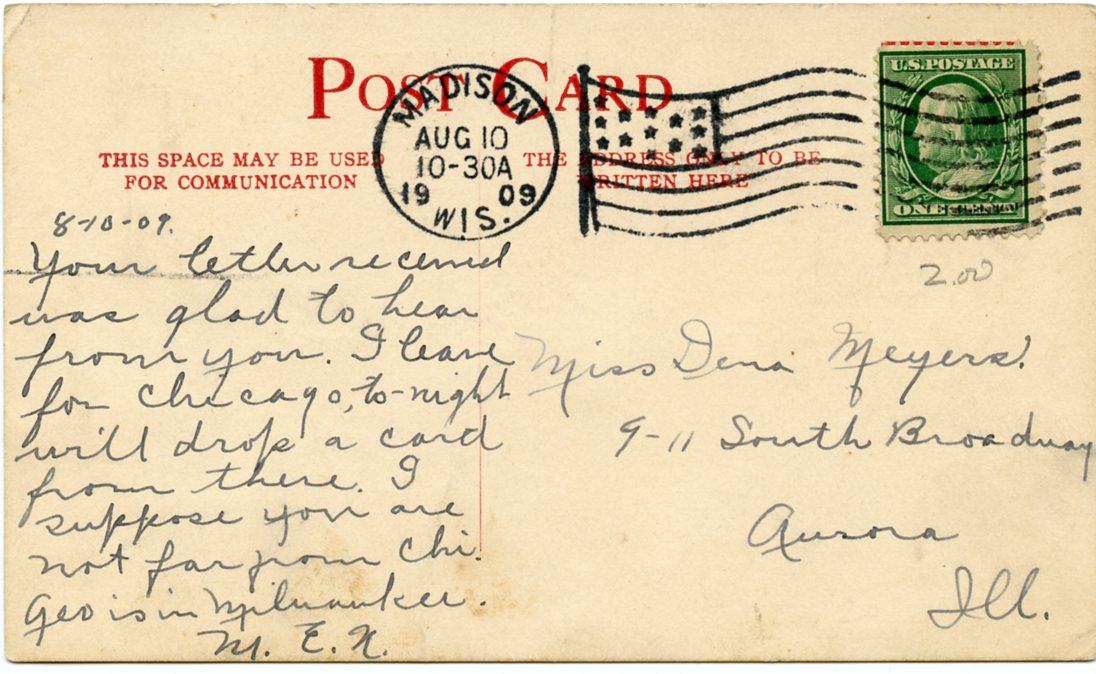 POST CARD
THIS SPACE MAY BE USED
FOR COMMUNICATION
THE ADDRESS ONLY TO BE
WRITTEN HERE
MADISON
AUG 10
10-30A
19 09
WIS.
U.S. POSTAGE
ONE CENT
2.00
8-10-09.
Your letter received
was glad to hear
from you. I leave
for Chicago, to-night
will drop a card
from there. I
suppose you are
not far from Chi.
Geo is in Milwaukee.
M. E. N.
Miss Dena Meyers.
9-11 South Broadway
Aurora
Ill.